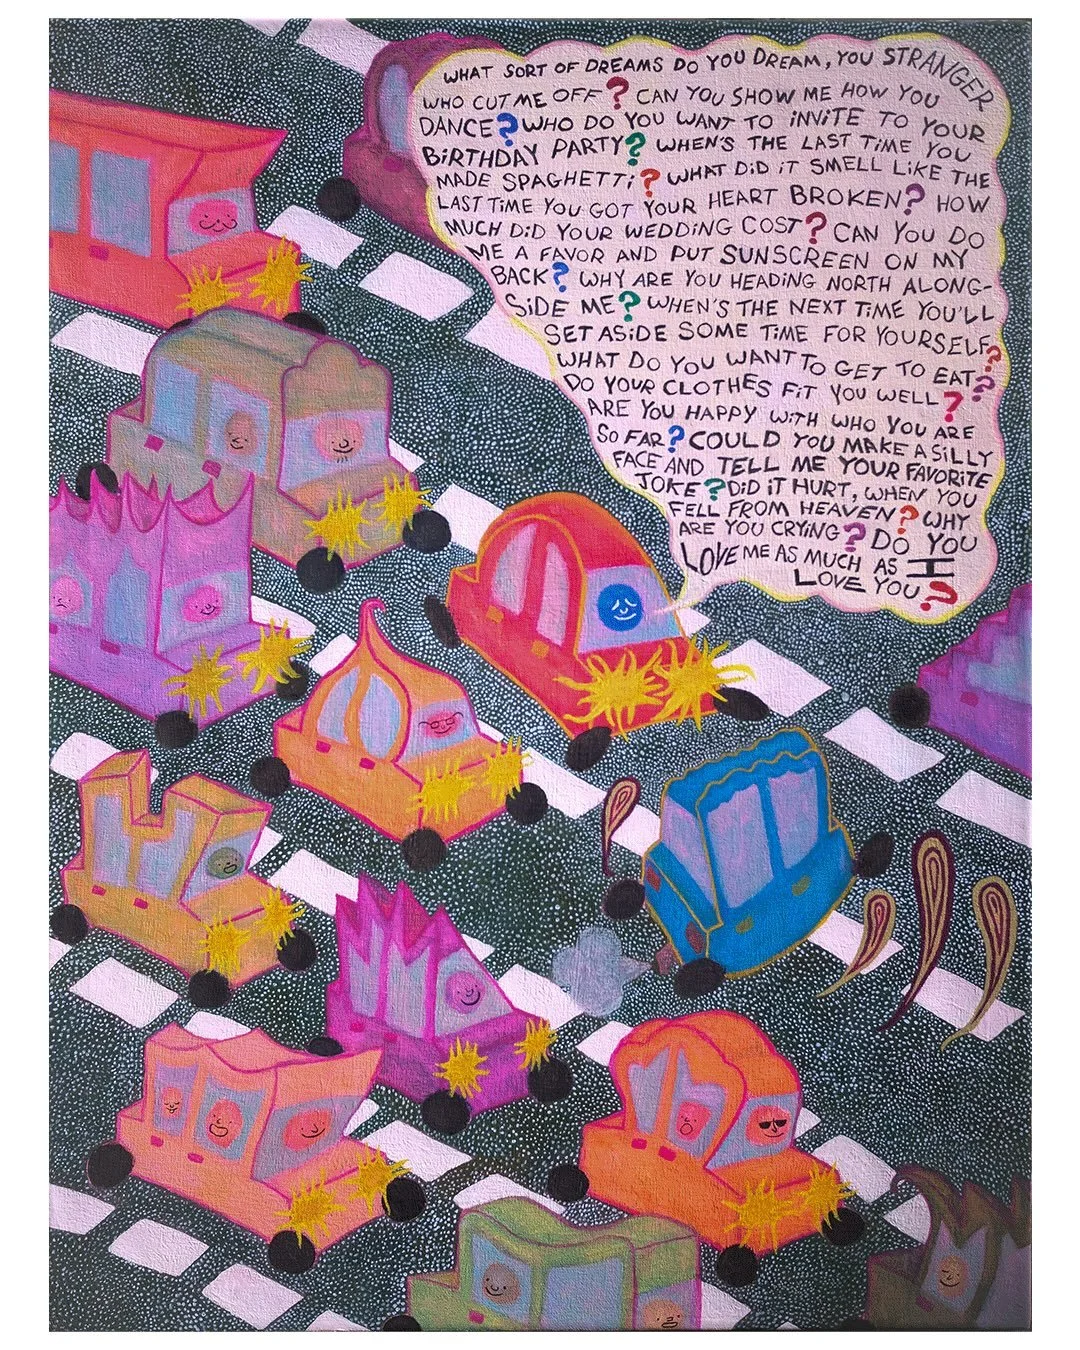 WHAT SORT OF DREAMS DO YOU DREAM, YOU STRANGER
WHO CUT ME OFF? CAN YOU SHOW ME HOW YOU
DANCE? WHO DO YOU WANT TO INVITE TO YOUR
BIRTHDAY PARTY? WHEN'S THE LAST TIME YOU
MADE SPAGHETTI? WHAT DID IT SMELL LIKE THE
LAST TIME YOU GOT YOUR HEART BROKEN? HOW
MUCH DID YOUR WEDDING COST? CAN YOU DO
ME A FAVOR AND PUT SUNSCREEN ON MY
BACK? WHY ARE YOU HEADING NORTH ALONG-
SIDE ME? WHEN'S THE NEXT TIME YOU'LL
SET ASIDE SOME TIME FOR YOURSELF?
WHAT DO YOU WANT TO GET TO EAT?
DO YOUR CLOTHES FIT YOU WELL?
ARE YOU HAPPY WITH WHO YOU ARE
SO FAR? COULD YOU MAKE A SILLY
FACE AND TELL ME YOUR FAVORITE
JOKE? DID IT HURT, WHEN YOU
FELL FROM HEAVEN? WHY
ARE YOU CRYING? DO YOU
LOVE ME AS MUCH AS I
LOVE YOU?